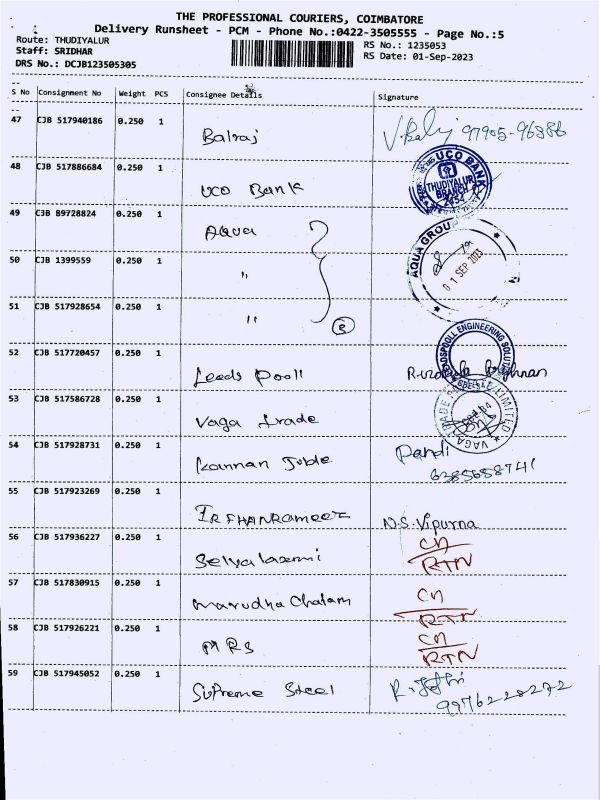 THE PROFESSIONAL COURIERS, COIMBATORE
Delivery Runsheet - PCM - Phone No.:0422-3505555 - Page No.:5
Route: THUDIYALUR RS No.: 1235053
Staff: SRIDHAR RS Date: 01-Sep-2023
DRS No.: DCJB123505305
S No Consignment No Weight PCS Consignee Details Signature
47 CJB 517940186 0.250 1 Balraj 97905-96386
48 CJB 517886684 0.250 1 UCO Bank UCO BANK THUDIYALUR BRANCH 2454
49 CJB 89728824 0.250 1 Aqua AQUA GROUP
50 CJB 1399559 0.250 1 " 01 SEP 2023
51 CJB 517928654 0.250 1 "
52 CJB 517720457 0.250 1 Leeds Pooll LEADSPOOLL ENGINEERING SOLUTION
53 CJB 517586728 0.250 1 Vaga trade VAGA TRADE LIMITED
54 CJB 517928731 0.250 1 Kannan Juble Pandi
6385658741
55 CJB 517923269 0.250 1 IRFHANRAMEEZ N.S. Vipurna
56 CJB 517936227 0.250 1 Selvalaxmi CN
RTN
57 CJB 517830915 0.250 1 Marudha Chalam CN
RTN
58 CJB 517926221 0.250 1 MRS CN
RTN
59 CJB 517945052 0.250 1 Supreme Steel
9976228272